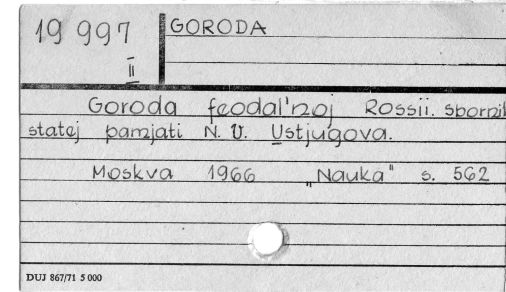 19 997
II
GORODA
Goroda feodal'noj Rossii. sbornik
statej pamjati N. V. Ustjugova.
Moskva 1966 „Nauka" s. 562
DUJ 867/71 5 000